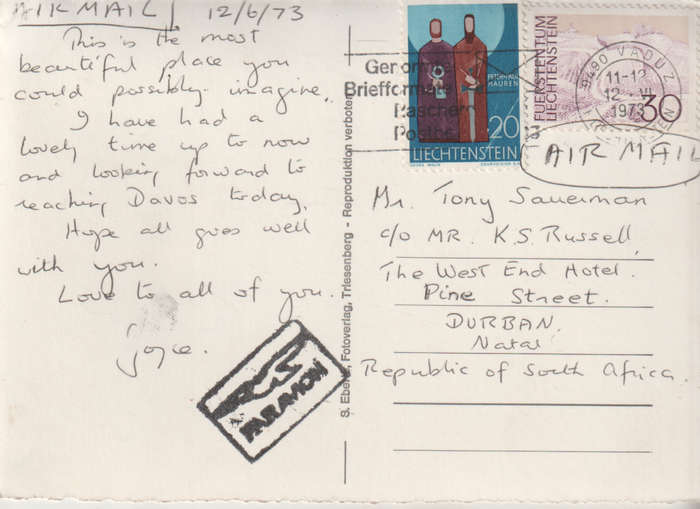 AIR MAIL 12/6/73
This is the most
beautiful place you
could possibly imagine.
I have had a
lovely time up to now
and looking forward to
reaching Davos today.
Hope all goes well
with you.
Love to all of you.
Joyce.
PAR AVION
S. Eberle, Fotoverlag, Triesenberg - Reproduktion verboten
Briefformate
Rascher
20
LIECHTENSTEIN
FUERSTENTUM
LIECHTENSTEIN
30
9490 VADUZ
12. VI.
1973
AIR MAIL
Mr. Tony Sauerman
c/o MR. K.S. Russell,
The West End Hotel.
Pine Street.
DURBAN.
Natal
Republic of South Africa.